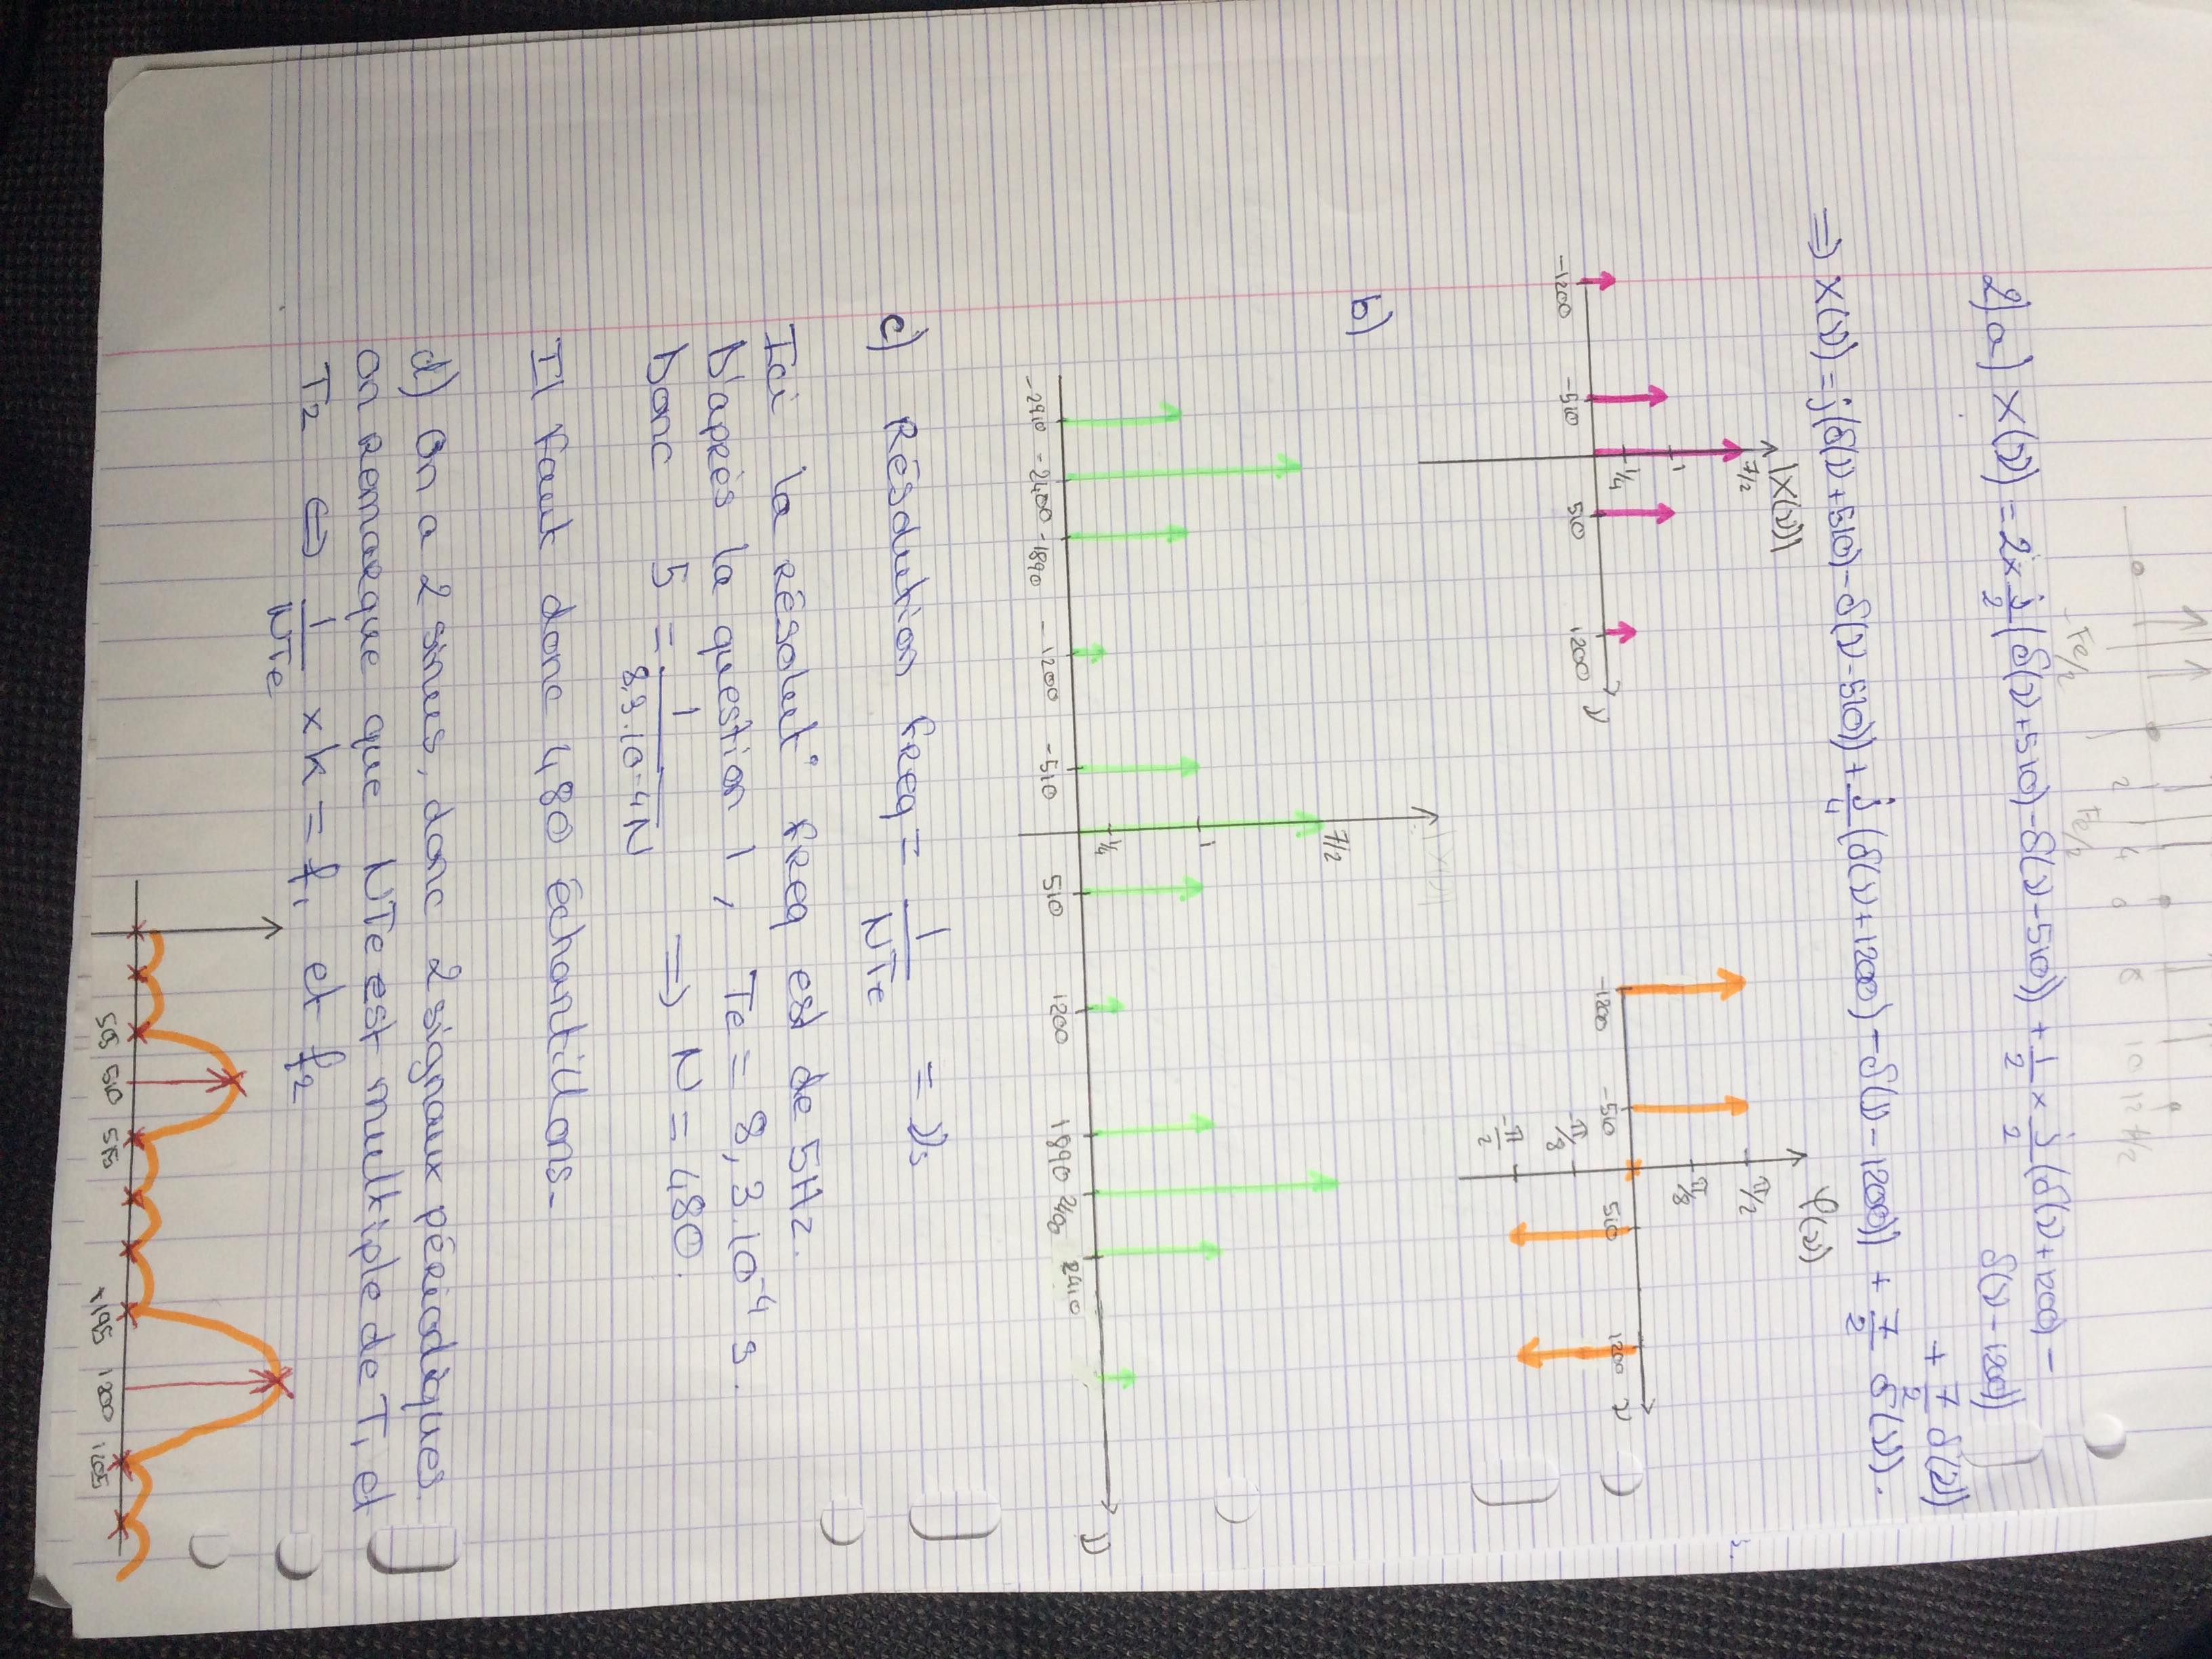 2 4 6 8 10 12
-Fe/2 Fe/2
2)a) X(ν) = 2 × j/2 (δ(ν+510) - δ(ν-510)) + 1/2 × j/2 (δ(ν+1200) -
δ(ν-1200))
+ 7/2 δ(ν)
⇒ X(ν) = j(δ(ν+510) - δ(ν-510)) + j/4 (δ(ν+1200) - δ(ν-1200)) + 7/2 δ(ν).
|X(ν)|
7/2
1
1/4
-1200 -510 510 1200 ν
φ(ν)
π/2
π/8
-1200 -510 510 1200 ν
-π/8
-π/2
b)
7/2
1
1/4
-2910 -2400 -1890 -1200 -510 510 1200 1890 2400 2410 ν
c) Résolution freq = 1/NTe = νs
Ici la résolut° freq est de 5Hz.
D'après la question 1, Te = 8,3.10^-4 s.
Donc 5 = 1/8,3.10^-4N ⇒ N = 480.
Il faut donc 480 échantillons.
d) On a 2 sinus, donc 2 signaux périodiques.
on remarque que NTe est multiple de T1 et
T2 ⇔ 1/NTe × k = f1 et f2
505 510 515 1195 1200 1205